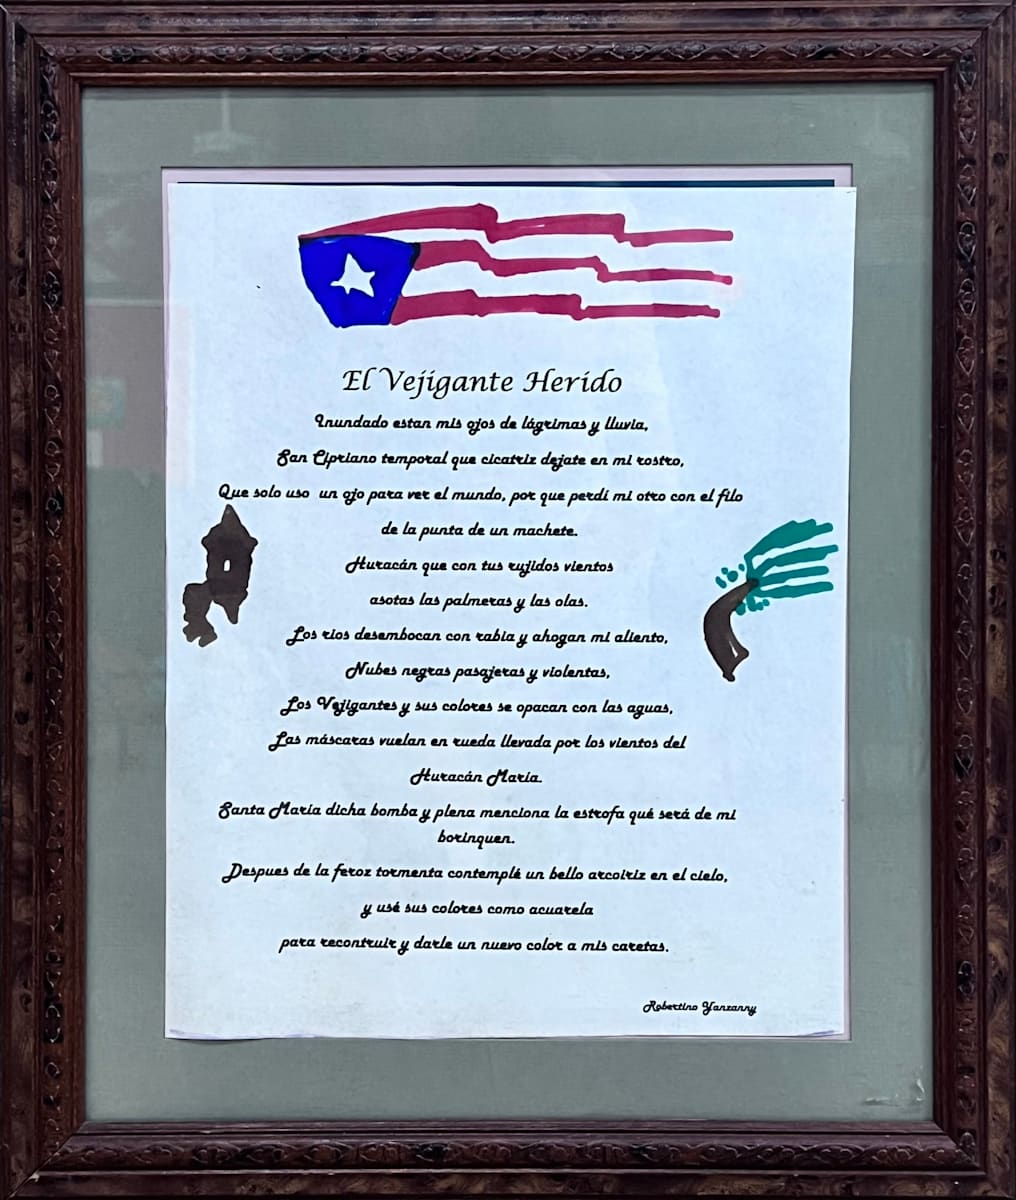 El Vejigante Herido
Inundado estan mis ojos de lágrimas y lluvia,
San Cipriano temporal que cicatriz dejate en mi rostro,
Que solo uso un ojo para ver el mundo, por que perdí mi otro con el filo
de la punta de un machete.
Huracán que con tus rujidos vientos
asotas las palmeras y las olas.
Los rios desembocan con rabia y ahogan mi aliento,
Nubes negras pasajeras y violentas,
Los Vejigantes y sus colores se opacan con las aguas,
Las máscaras vuelan en rueda llevada por los vientos del
Huracán María.
Santa María dicha bomba y plena menciona la estrofa qué será de mi
borinquen.
Despues de la feroz tormenta contemplé un bello arcoiriz en el cielo,
y usé sus colores como acuarela
para recontruir y darle un nuevo color a mis caretas.
Robertino Yanzanny